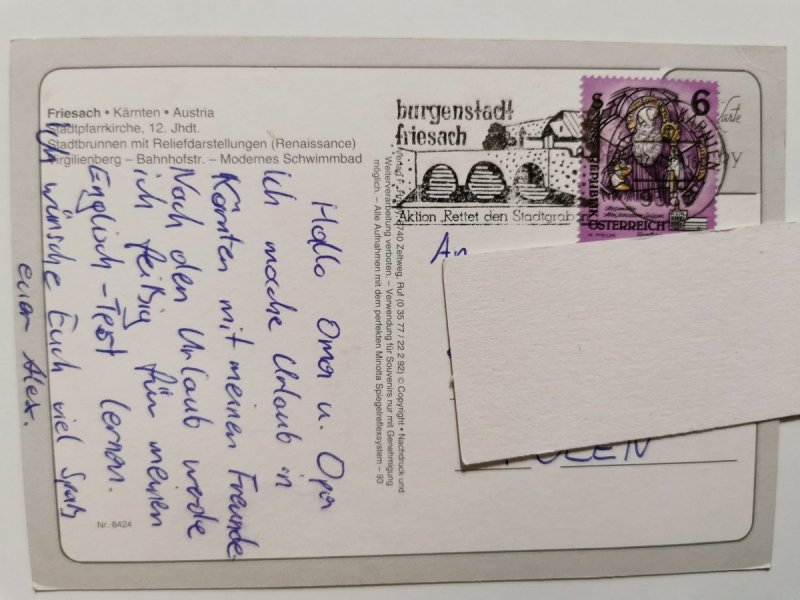 Friesach • Kärnten • Austria
Stadtpfarrkirche, 12. Jhdt.
Stadtbrunnen mit Reliefdarstellungen (Renaissance)
Virgilienberg – Bahnhofstr. – Modernes Schwimmbad
Hallo Oma u. Opa
Ich mache Urlaub in
Kärnten mit meinen Freunde
Nach den Urlaub werde
ich fleißig für meinen
Englisch-Test lernen.
Ich wünsche Euch viel Spaß
euer Alex.
Nr. 8424
8740 Zeltweg, Ruf (0 35 77 / 22 2 92) © Copyright • Nachdruck und
Weiterverarbeitung verboten. – Verwendung für Souvenirs nur mit Genehmigung
möglich. – Alle Aufnahmen mit dem perfekten Minolta Spiegelreflexsystem – 93
burgenstadt
friesach
Aktion „Rettet den Stadtgraben
6
REPUBLIK
ÖSTERREICH
An
POLEN